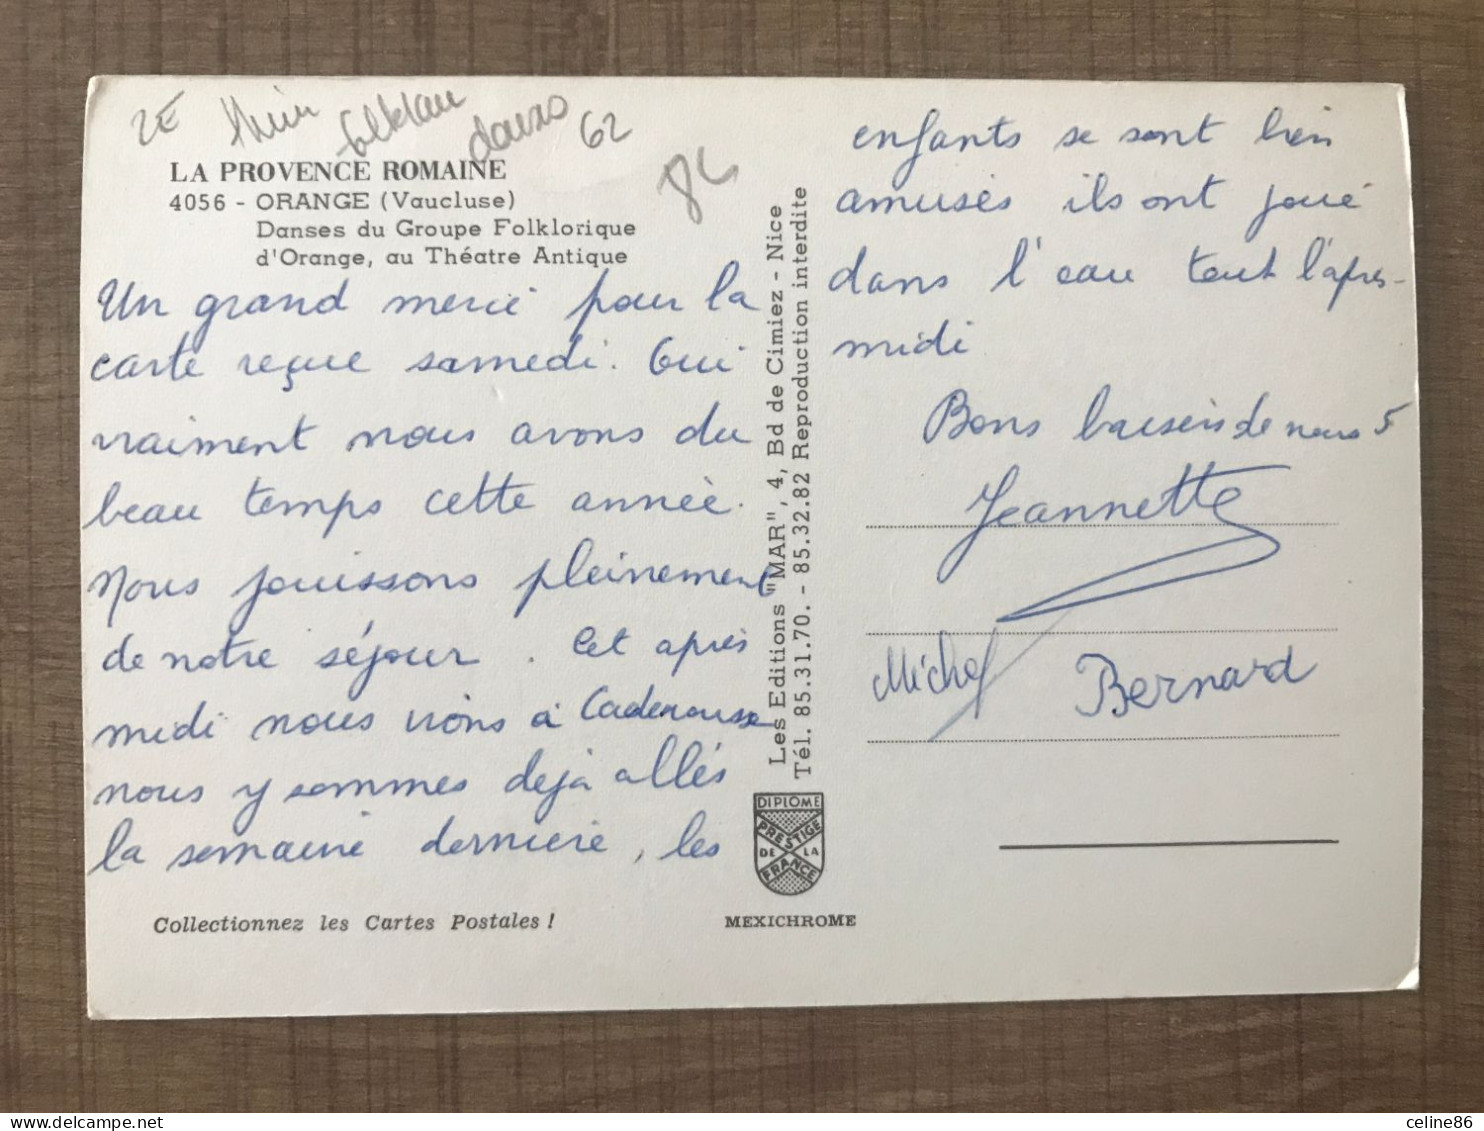 2E
folklau
62
LA PROVENCE ROMAINE
4056 - ORANGE (Vaucluse)
Danses du Groupe Folklorique
d'Orange, au Théatre Antique
Un grand merci pour la
carte reçue samedi. Oui
vraiment nous avons du
beau temps cette année.
Nous jouissons pleinement
de notre séjour. Cet après
midi nous irons à Caderousse
nous y sommes dejà allés
la semaine dernière, les
Collectionnez les Cartes Postales !
Les Editions "MAR", 4, Bd de Cimiez - Nice
Tél. 85.31.70. - 85.32.82 Reproduction interdite
DIPLOME
PRESTIGE
DE LA
FRANCE
MEXICHROME
enfants se sont bien
amusés ils ont joué
dans l'eau tout l'après-
midi
Bons baisers de nous 5
Jeannette
Michel
Bernard
celine86